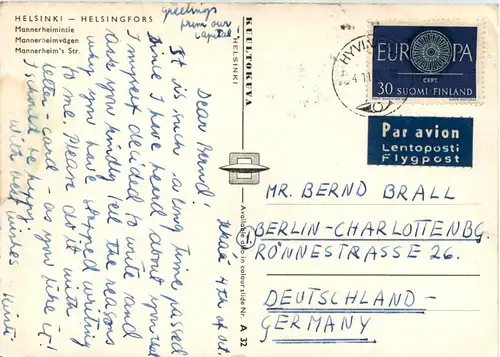 HELSINKI — HELSINGFORS
Mannerheimintie
Mannerheimvägen
Mannerheim's Str.
greetings
from our
capital
KUULTOKUVA
HELSINKI
Available also in colour slide Nr. A 32
4th of Oct.
Dear Bernd!
It is such a long time passed
since I have heard about you that
I myself decided to write and
ask you kindly tell the reasons
why you have stopped writing
to me. Please do it with
letter - card - as you like it!
I should be happy
With best wishes
HYVIN
EUROPA
CEPT
30 SUOMI-FINLAND
Par avion
Lentoposti
Flygpost
MR. BERND BRALL
BERLIN-CHARLOTTENBG.
RÖNNESTRASSE 26.
DEUTSCHLAND-
GERMANY.